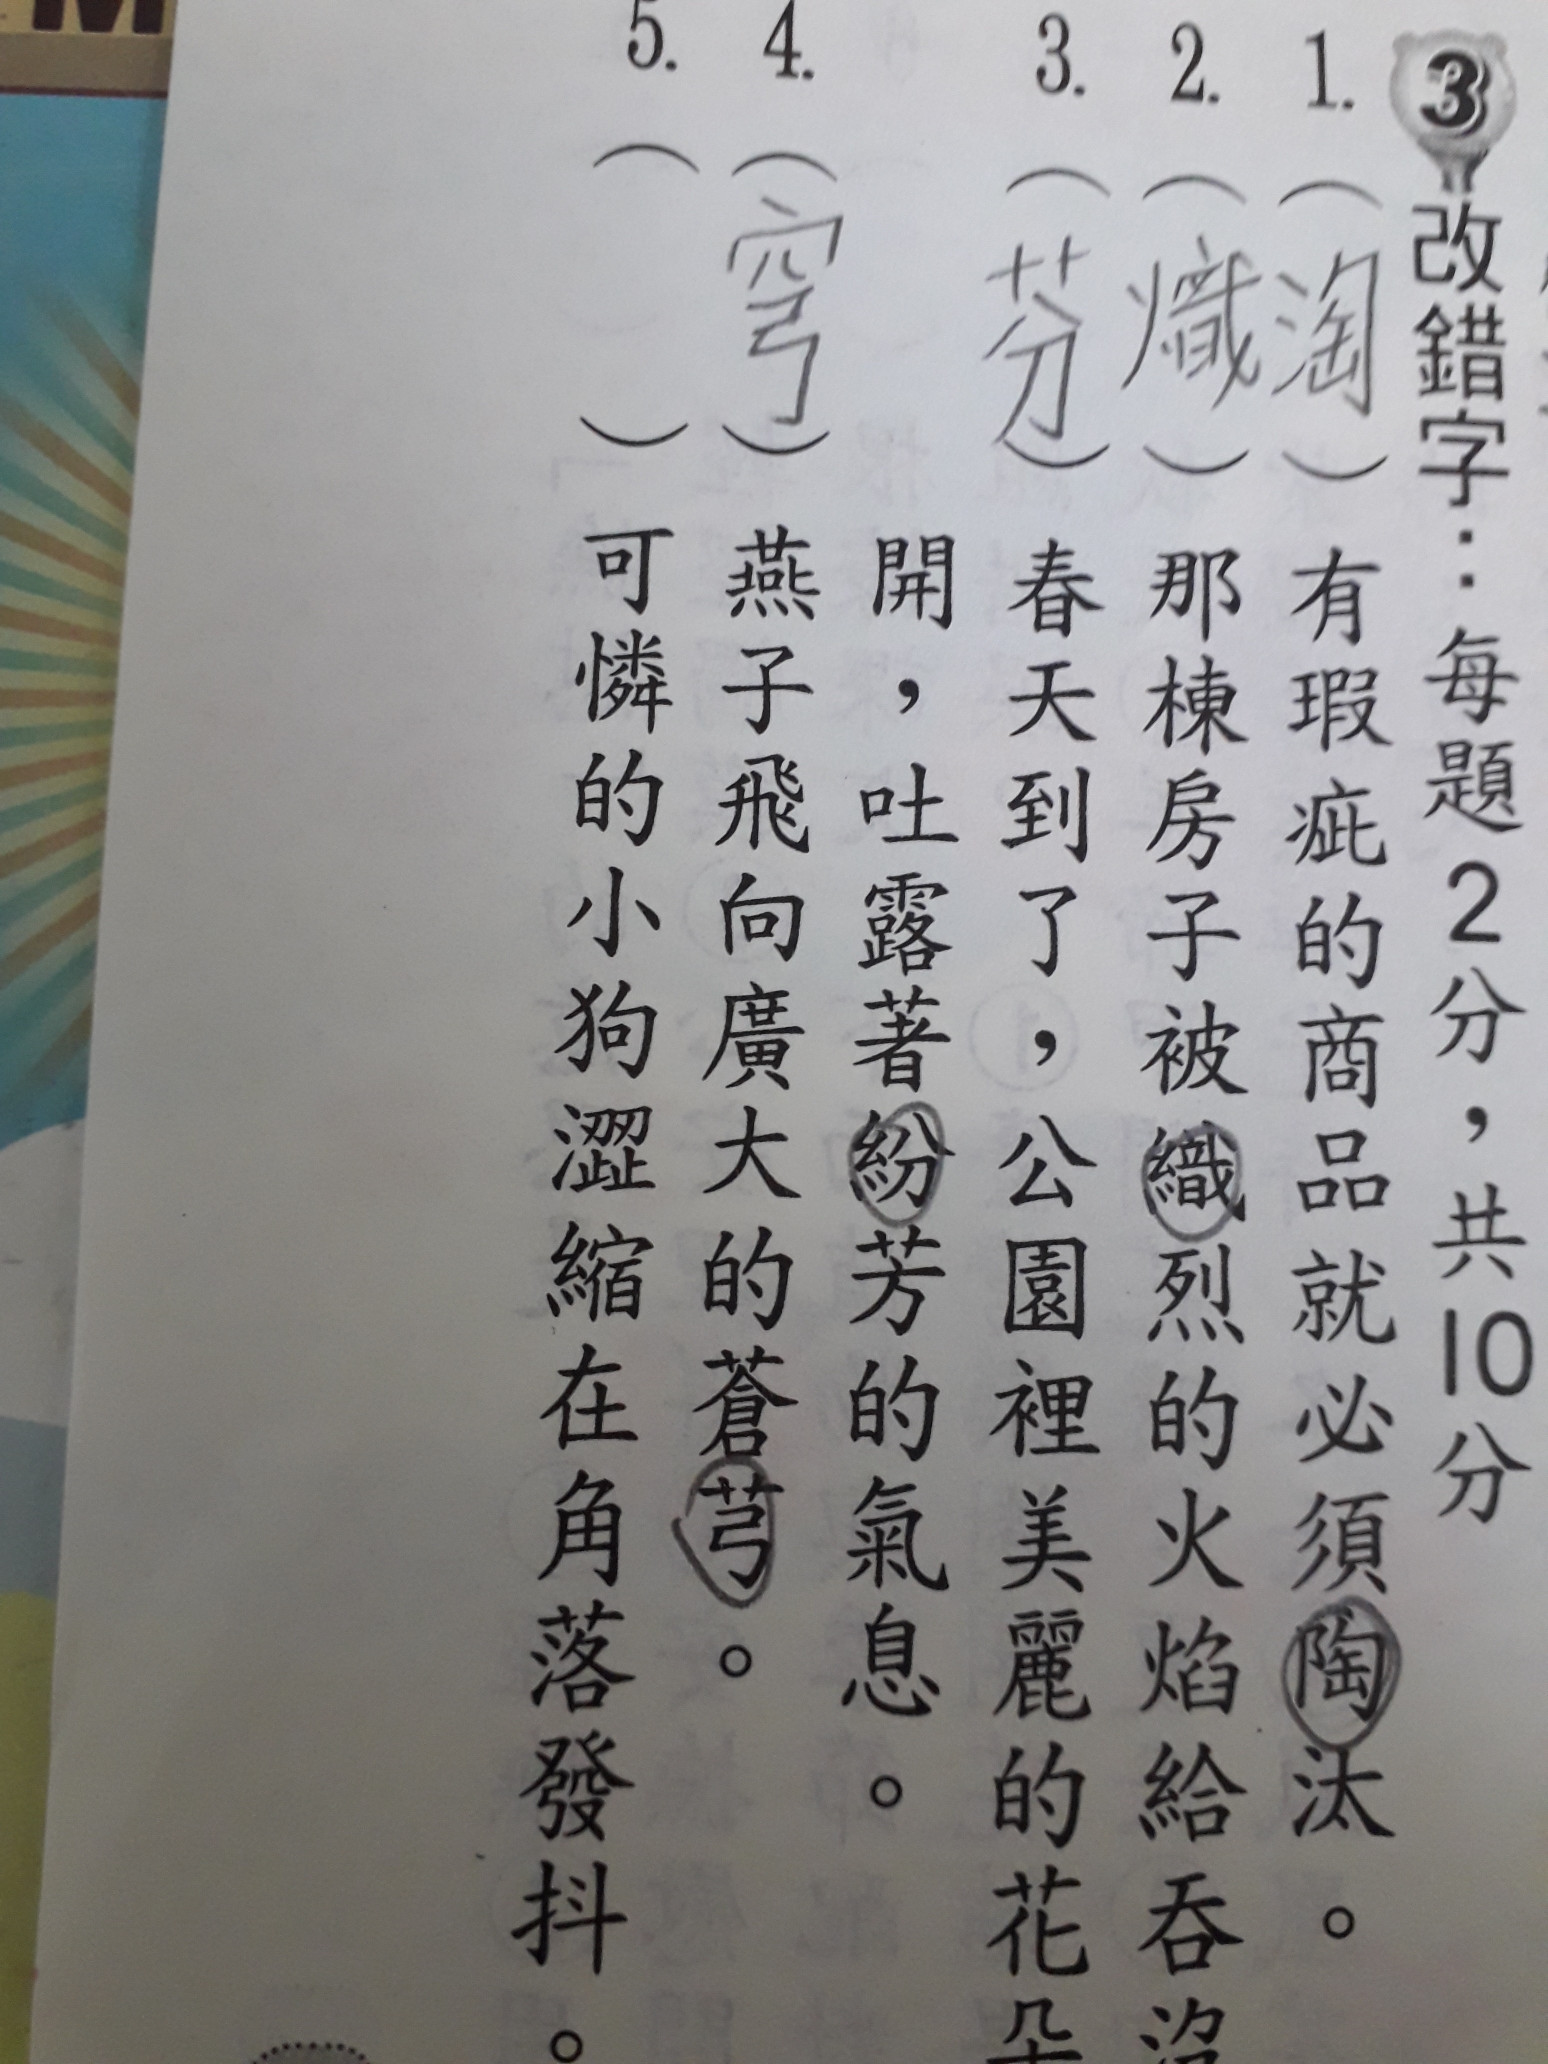 3 改錯字：每題2分，共10分
1.（淘）有瑕疵的商品就必須陶汰。
2.（熾）那棟房子被織烈的火焰給吞沒
3.（芬）春天到了，公園裡美麗的花朵
開，吐露著紛芳的氣息。
4.（穹）燕子飛向廣大的蒼芎。
5.（ ）可憐的小狗澀縮在角落發抖。
M